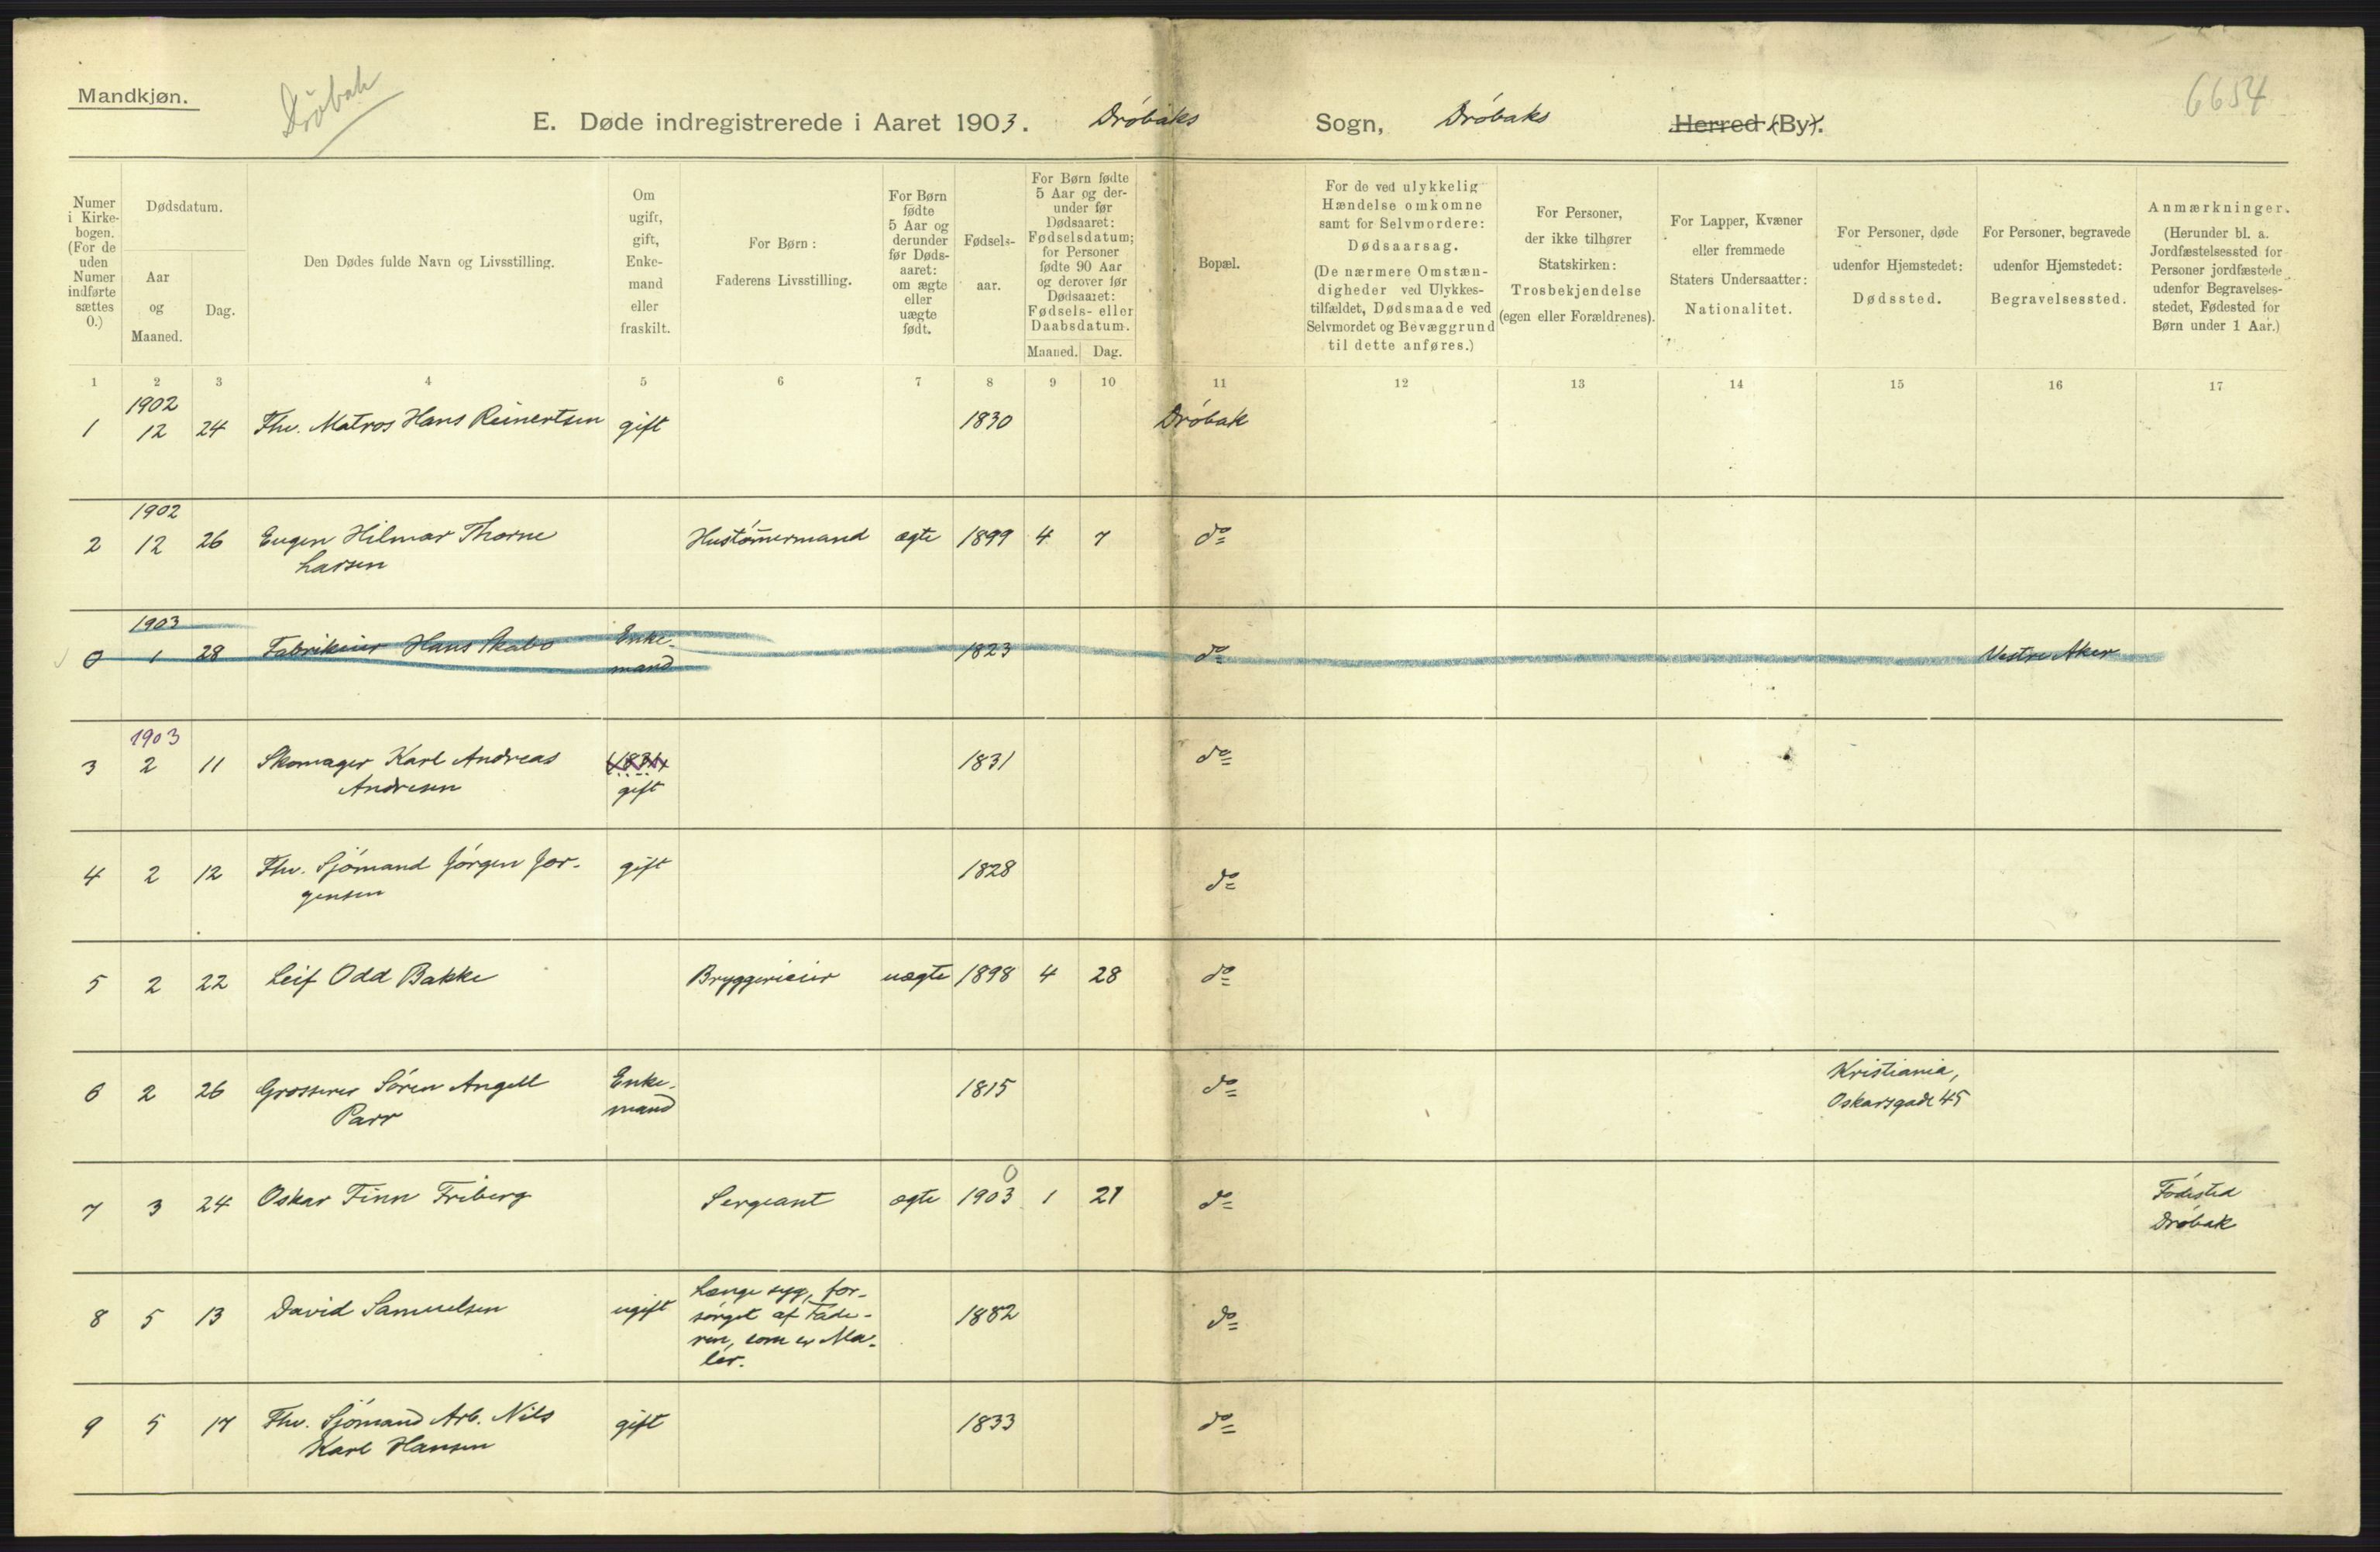 Mandkjøn.
Drøbak
E. Døde indregistrerede i Aaret 1903. Drøbaks Sogn, Drøbaks Herred (By).
6654
Numer i Kirkebogen. (For de uden Numer indførte sættes 0.)
Dødsdatum.
Aar og Maaned.
Dag.
Den Dødes fulde Navn og Livsstilling.
Om ugift, gift, Enkemand eller fraskilt.
For Børn: Faderens Livsstilling.
For Børn fødte 5 Aar og derunder før Dødsaaret: om ægte eller uægte født.
Fødselsaar.
For Børn fødte 5 Aar og derunder før Dødsaaret: Fødselsdatum; for Personer fødte 90 Aar og derover før Dødsaaret: Fødsels- eller Daabsdatum.
Maaned. Dag.
Bopæl.
For de ved ulykkelig Hændelse omkomne samt for Selvmordere: Dødsaarsag. (De nærmere Omstændigheder ved Ulykkestilfældet, Dødsmaade ved Selvmordet og Bevæggrund til dette anføres.)
For Personer, der ikke tilhører Statskirken: Trosbekjendelse (egen eller Forældrenes).
For Lapper, Kvæner eller fremmede Staters Undersaatter: Nationalitet.
For Personer, døde udenfor Hjemstedet: Dødssted.
For Personer, begravede udenfor Hjemstedet: Begravelsessted.
Anmærkninger. (Herunder bl. a. Jordfæstelsessted for Personer jordfæstede udenfor Begravelsesstedet, Fødested for Børn under 1 Aar.)
1 2 3 4 5 6 7 8 9 10 11 12 13 14 15 16 17
1902
1 12 24 Fhv. Matros Hans Reinertsen gift 1830 Drøbak
1902
2 12 26 Eugen Hilmar Thorne Hustømermand ægte 1899 4 7 do
Larsen
1903
0 1 28 Fabrikeier Hans Skabo Enke- 1823 do Vestre Aker
mand
1903
3 2 11 Skomager Karl Andreas 1831 1831 do
Andresen gift
4 2 12 Fhv. Sjømand Jørgen Jør- gift 1828 do
gensen
5 2 22 Leif Odd Bakke Bryggerieier uægte 1898 4 28 do
6 2 26 Grosserer Søren Angell Enke- 1815 do Kristiania,
Parr mand Oskarsgade 45
0
7 3 24 Oskar Finn Friberg Sergeant ægte 1903 1 21 do Fødested
Drøbak
8 5 13 David Samuelsen ugift Længe syg, for- 1882 do
sørget af Fade-
ren, som er Ma-
ler.
9 5 17 Fhv. Sjømand Arb. Nils gift 1833 do
Karl Hansen